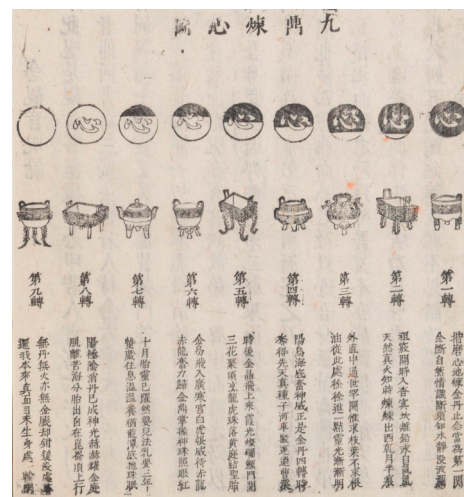 九鼎煉心圖
第一轉
指磨心地煉金丹止念當為第一関
念斷自然情識斷須知水靜沒波瀾
第二轉
寂寂閒時入杳冥坎離鉛汞自
天然真火如時煉煉出西南月半痕
第三轉
外直中通世罕聞惟求枝葉不求根
油從此處徐徐進一點靈光漸漸明
第四轉
陽烏海底奮神威正是金丹四轉時
奪得先天真種子河車
第五轉
時後金晶飛上來霞光燦爛頂門開
三花聚頂京龍虎珠落黄庭結聖胎
第六轉
金烏飛入廣寒宮白虎張威待赤龍
赤龍奮力歸金鼎掌握神珠照眼紅
第七轉
十月胎靈已躍然嬰兒法乳要三年
蟄藏休息温温養猶龍深底抱珠眠
第八轉
陽極陰消丹已成神光赫赫耀金庭
脫離苦海分胎出自在崑崙頂上行
第九轉
無丹無火亦無金脫却鉗錘沒處尋
還我本來真面目未生身處一輪明